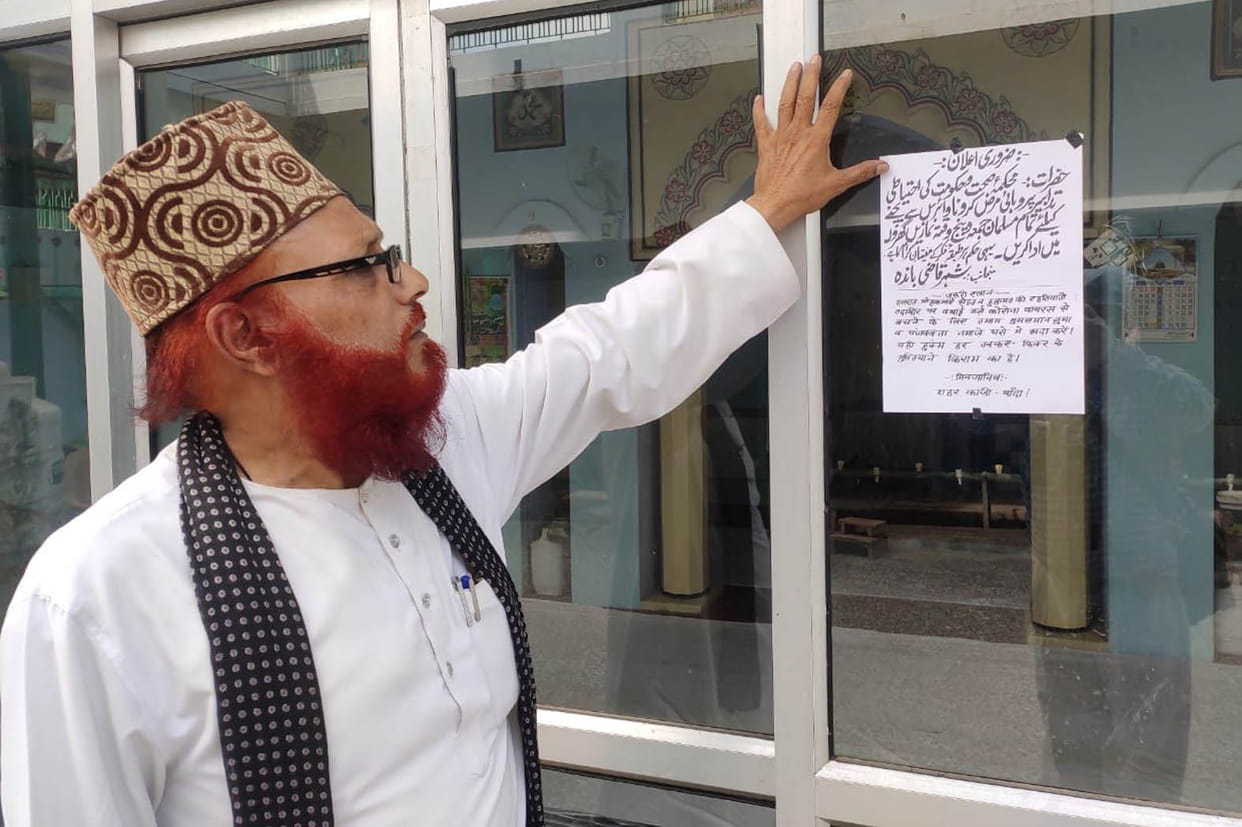 -: ضروری اعلان :-
حضرات :- محکمۂ صحت و حکومت کی احتیاطی
تدابیر پر وبائی مرض کرونا وائرس سے بچنے
کیلئے تمام مسلمان جمعہ و پنج وقتہ نمازیں گھروں
میں ادا کریں۔ یہی حکم ہر طبقۂ فکر کے مفتیان کرام کا ہے
منجانب شہر قاضی باندہ
जरूरी एलान
हजरात महकमये सेहत व हुकूमत की एहतियाति
तदाबीर पर वबाई मर्ज कोरोना वायरस से
बचने के लिए तमाम मुसलमान जुमा
व पंजवक्ता नमाजे घरो में अदा करें।
यही हुकम हर तबकए-फिकर के
मुफ्तियाने किराम का है।
-: मिनजानिब:-
शहर काजी - बाँदा।